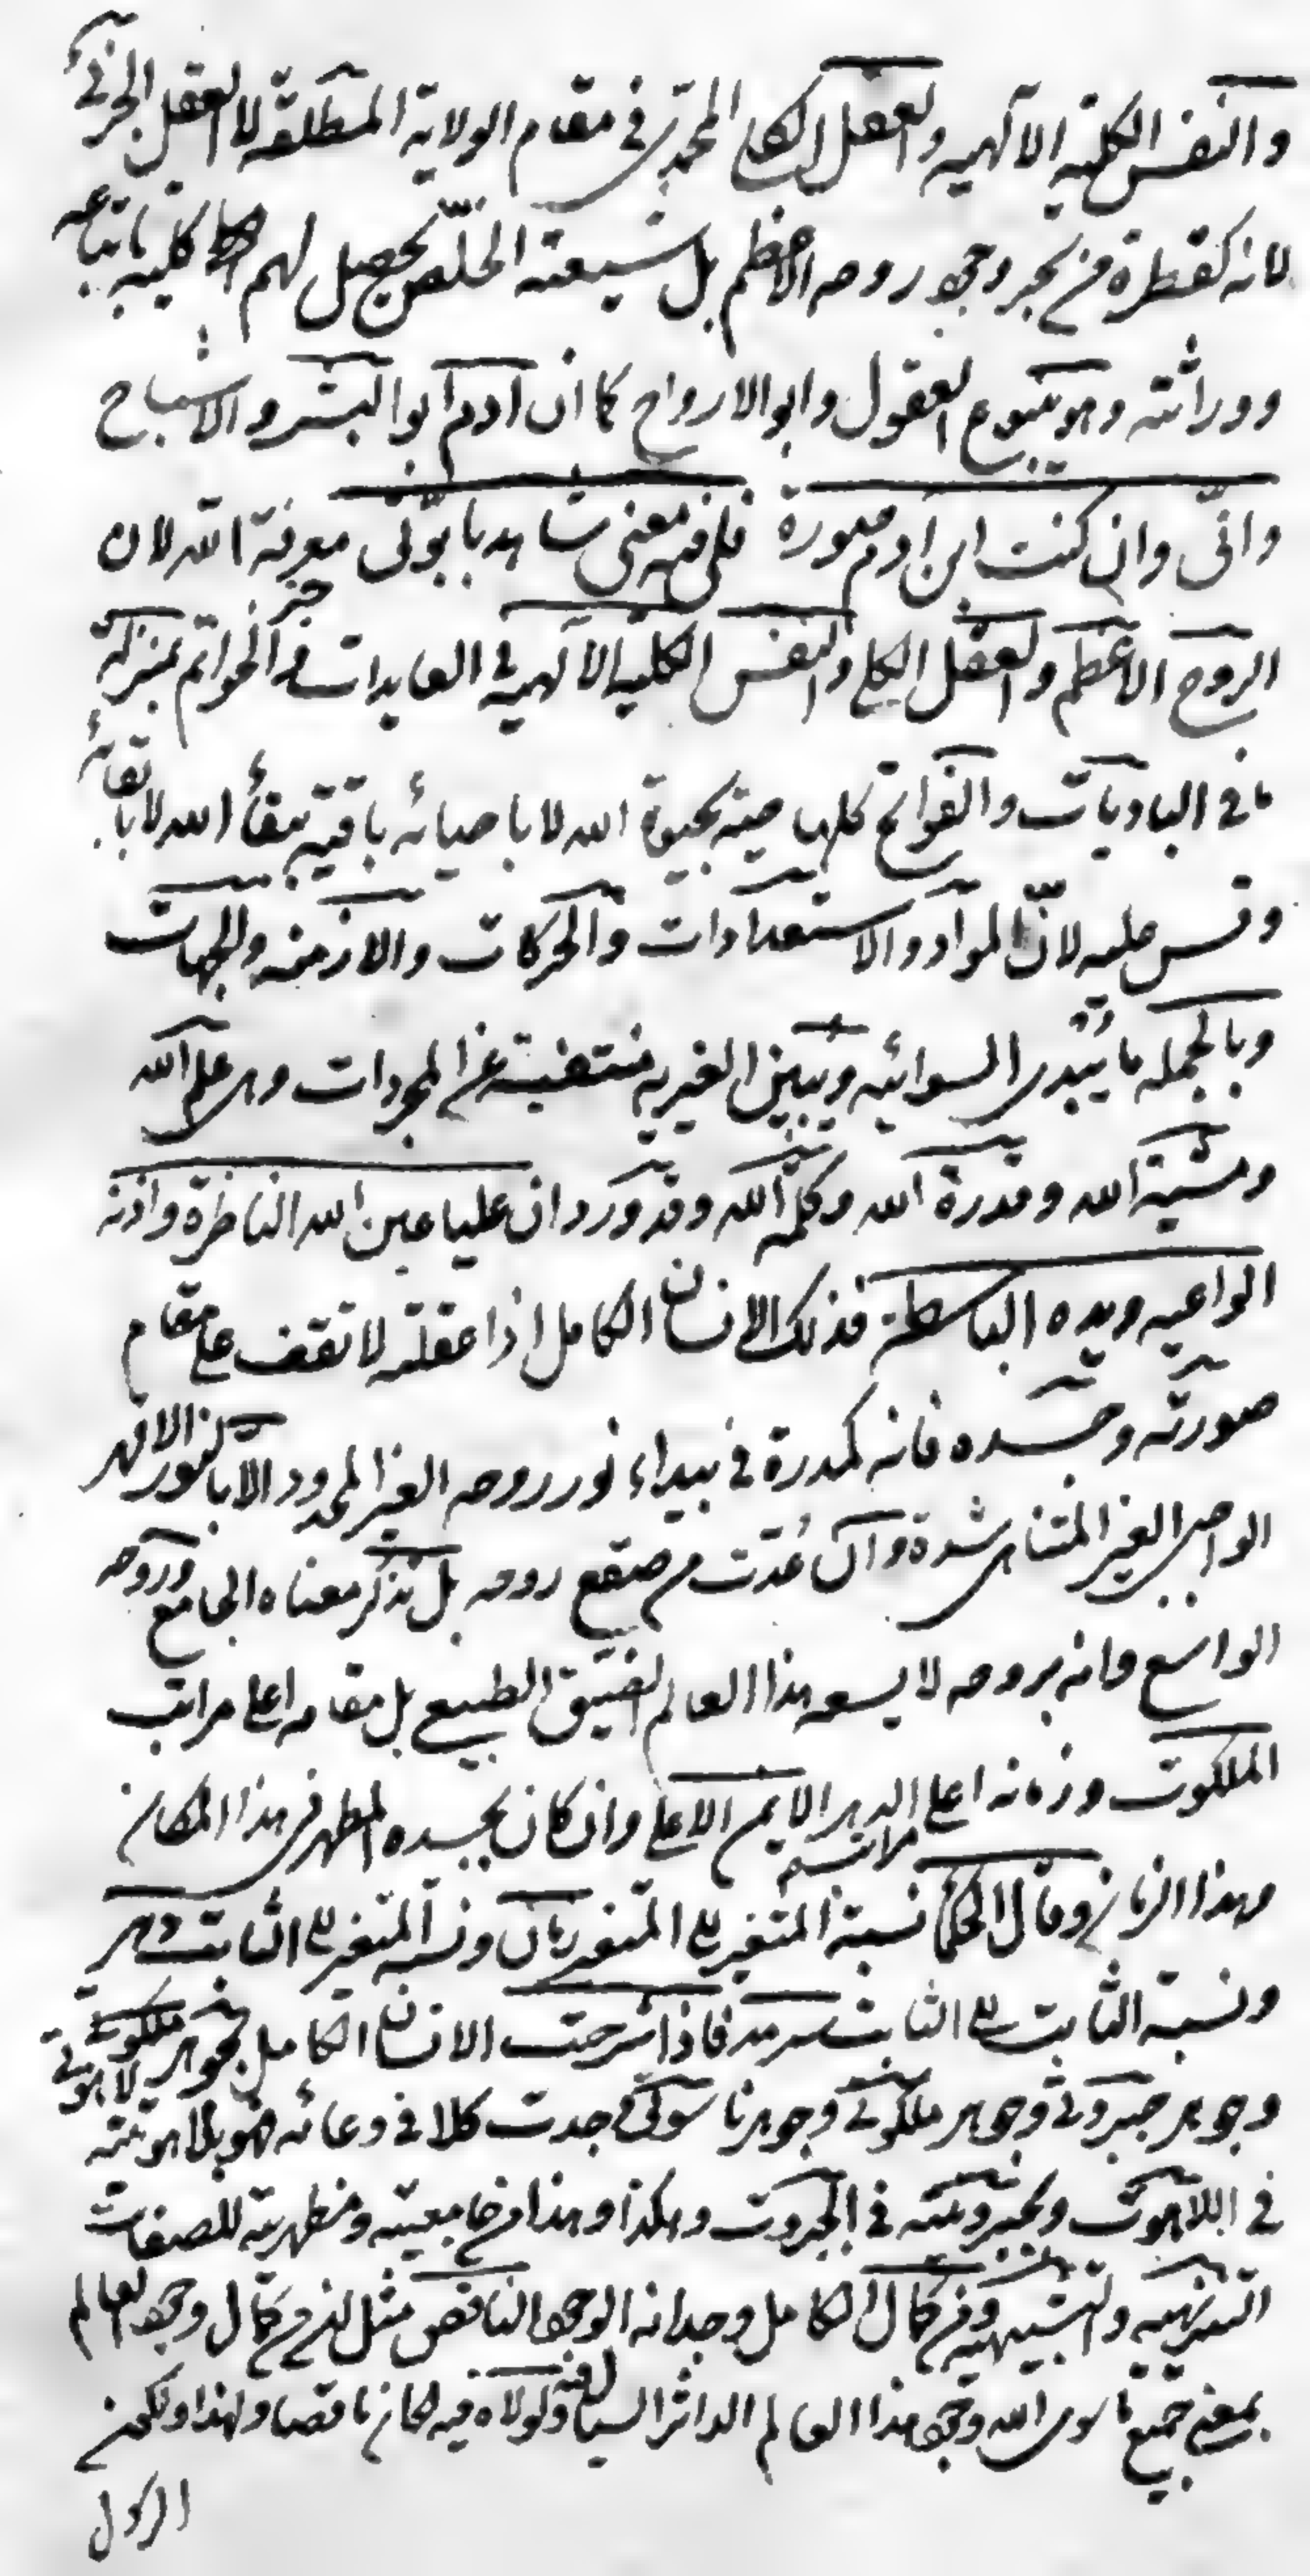 والنفس الكلیه الآلهیه والعقل الكلی المحمدی فی مقام الولایة المطلقه لا العقل الجزئی
لانه كقطرة من بحر وجود روحه الاعظم بل شیعته الخلّص یحصل لهم كلیه باتباعه
ووراثته وهو ینبوع العقول وابو الارواح كما ان آدم ابو البشر والاشباح
وانّی وان كنت ابن آدم صورة فلی فیه معنی شاهد بابوّتی معرفة الله لان
الروح الاعظم والعقل الكلی والنفس الكلیه الآلهیة فی العایدات من الخواتم بمنزلة
ما فی البادیات والفواتح كلها حیة بحیوة الله لا باحیائه باقیة ببقاء الله لا بابقائه
وقس علیه لانّ المواد والاستعدادات والحركات والازمنه والجهات
وبالجمله ما یُبْدی السوائیه ویبین الغیریه منتفیة عن المجردات وهی علم الله
ومشیة الله وقدرة الله وكلمة الله وقد ورد ان علیا عین الله الناظرة واذنه
الواعیه ویده الباسطة فذلك الانسان الكامل اذا عقلته لا تقف علی مقام
صورته وجسده فانه كمدرة فی بیداء نور روحه الغیر المحدود الا بالنور الاقهر
الواجبی الغیر المتناهی شدة وان عُدّت من صقع روحه بل تذكر معناه الجامع وروحه
الواسع فانه بروحه لا یسعه هذا العالم الضیّق الطبیعی بل مقامه اعلی مراتب
الملكوت وزمانه اعلی مراتب الدهر الایمن الاعلی وان كان بجسده المطهر فی هذا المكان
وهذا الزمان وقال الحكماء نسبة المتغیر الی المتغیر زمان ونسبة المتغیر الی الثابت دهر
ونسبة الثابت الی الثابت سرمد فاذا شرحت الانسان الكامل بجوهر لاهوتی
وجوهر جبروتی وجوهر ملكوتی وجوهر ناسوتی وجدت كلا فی وعائه فهو بلاهوتیته
فی اللاهوت وبجبروتیته فی الجبروت وهكذا وهذا من جامعیته ومظهریته للصفات
التنزیهیه والتشبیهیه ومن كمال الكامل وجدانه الوجود الناقص مثل انه من كمال وجود العالم
بمعنی جمیع ما سوی الله وجود هذا العالم الداثر السیال فیه ولولاه فیه لكان ناقصا ولهذا ولكون